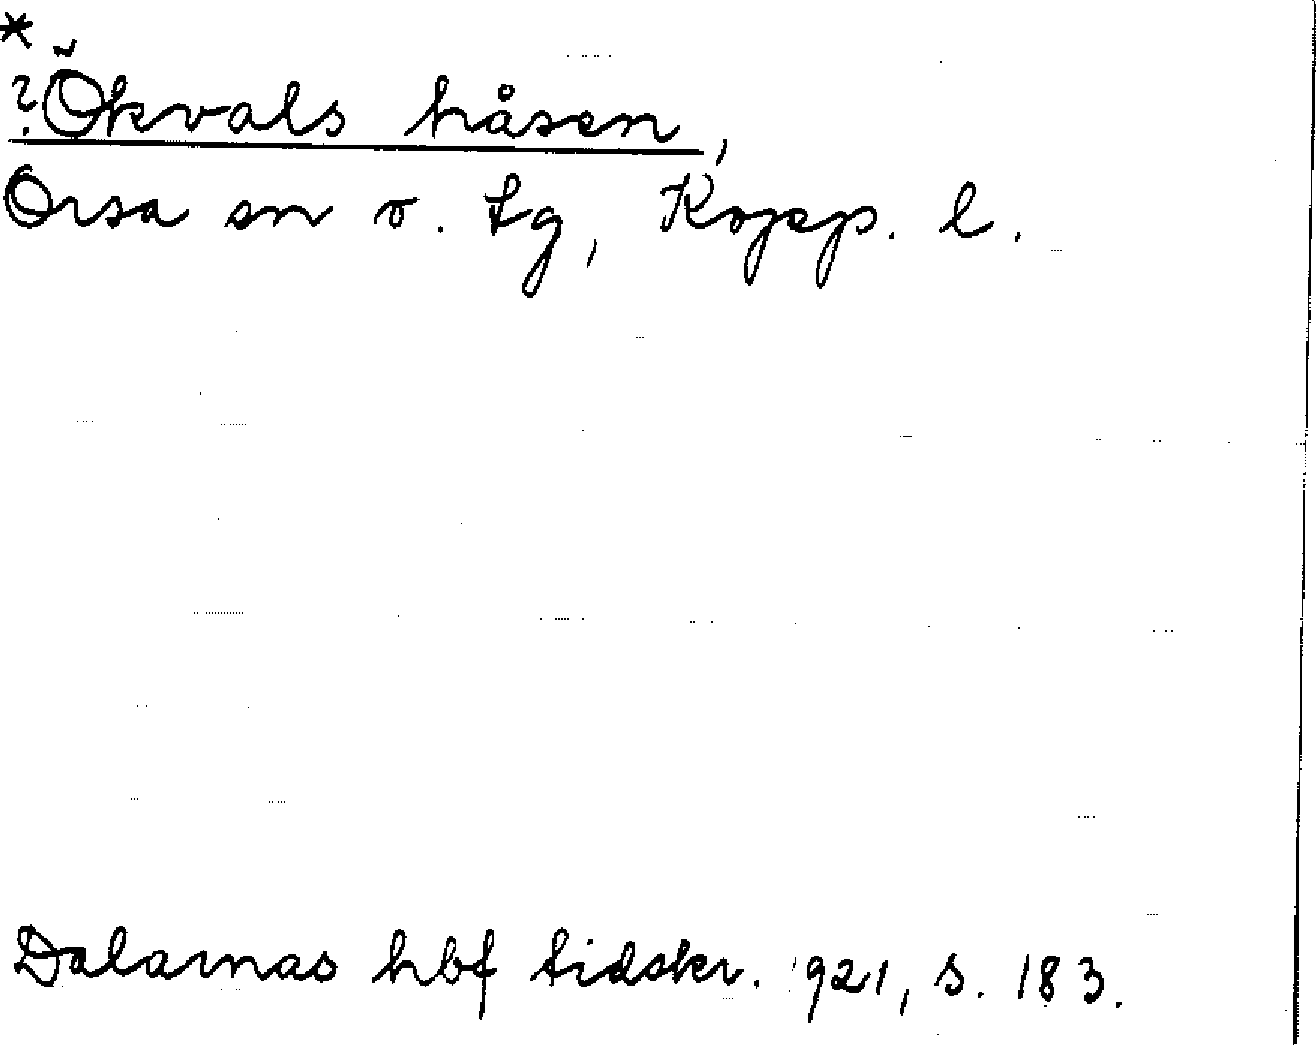 *
?Ökvals håsen,
Orsa sn o. tg, Kopp. l.
Dalarnas hbf tidskr. 1921, s. 183.